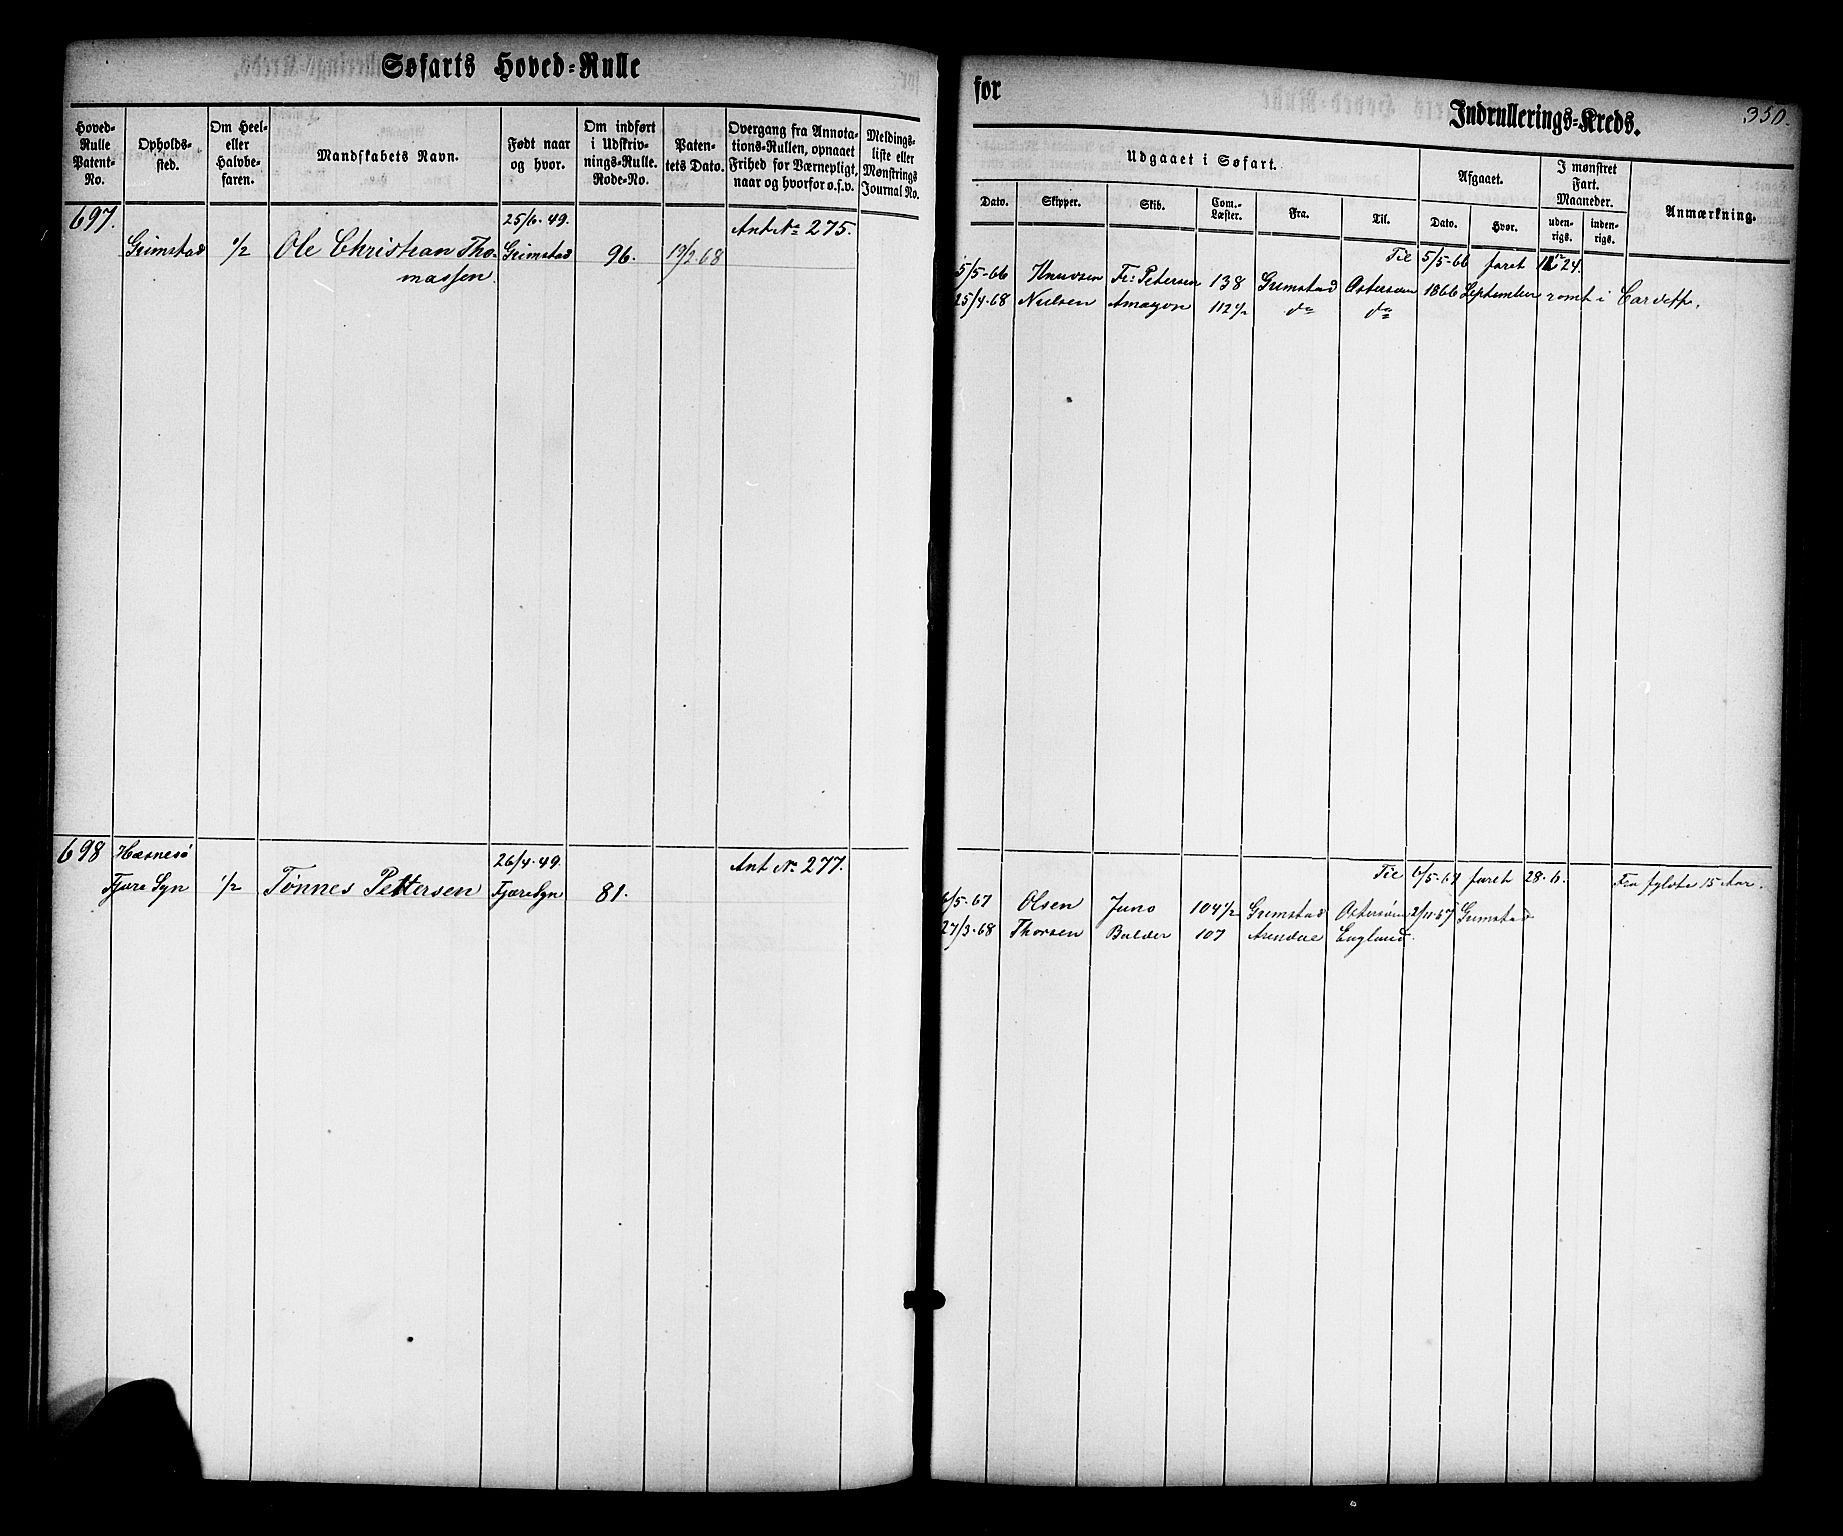 Søfarts Hoved-Rulle
for
Indrullerings-Kreds.
350.
Hoved-Rulle Patent-No.
Opholds-sted.
Om Heel- eller Halvbe-faren.
Mandskabets Navn.
Født naar og hvor.
Om indført i Udskriv-nings-Rulle. Rode-No.
Paten-tets Dato.
Overgang fra Annota-tions-Rullen, opnaaet Frihed for Værnepligt, naar og hvorfor o.s.v.
Meldings-liste eller Mønstrings Journal No.
Udgaaet i Søfart.
Dato.
Skipper.
Skib.
Com.-Læster.
Fra.
Til.
Afgaaet.
Dato.
Hvor.
I mønstret Fart. Maaneder.
uden-rigs.
inden-rigs.
Anmærkning.
697.
Grimstad
1/2
Ole Christian Tho-
massen.
25/6-49.
Grimstad
96.
19/2 68
Ant No 275.
Til 5/5-66 faret 24.
5/5-66 Knudsen Fr: Petersen 138 Grimstad Østersøen 1866 September rømt i Cardeff.
25/4-68 Nielsen Amazon 112 1/2 do do
698
Hæsnesø
Fjære Sgn
1/2
Tønnes Pettersen
26/4-49.
Fjære Sgn
81.
Ant No 277.
Til 6/5-67 faret 28-6. Fra fyldte 15 Aar.
6/5-67 Olsen Juno 104 1/2 Grimstad Østersøen 2/11-67 Grimstad
27/3-68 Thorsen Balder 107 Arendal England.